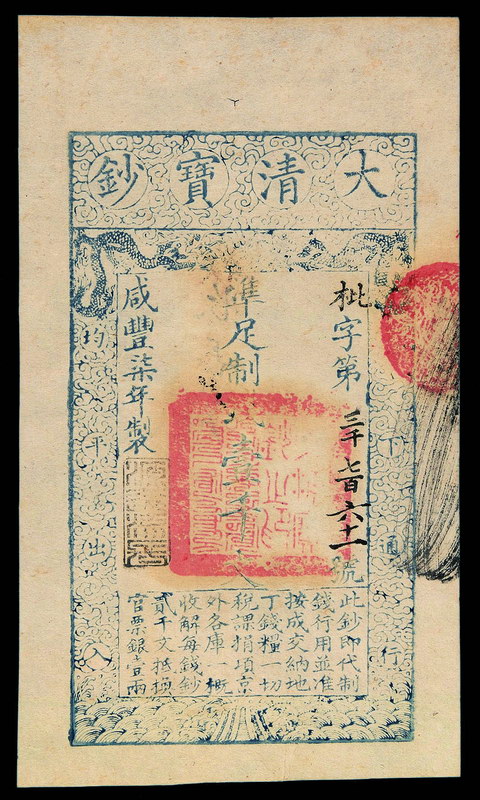 大清寶鈔
枇字第三千七百六十一號
準足制錢壹千文
咸豐柒年製
下通行
均平出入
此鈔即代制
錢行用並准
按成交納地
丁錢糧一切
稅課捐項京
外各庫一概
收解每錢鈔
貳千文抵換
官票銀壹兩